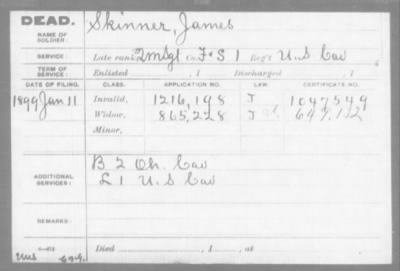 DEAD.
Skinner, James
NAME OF SOLDIER:
SERVICE: Late rank, 2mSgt Co. F&S 1 Reg't U.S Cav
TERM OF SERVICE: Enlisted , 1 Discharged , 1
DATE OF FILING. CLASS. APPLICATION NO. LAW. CERTIFICATE NO.
1899 Jan 11 Invalid, 1216,198 J 1047549
Widow, 865,228 J
Minor,
B 2 Oh. Cav
ADDITIONAL SERVICES: L 1 U.S Cav
REMARKS:
Died , 1 , at